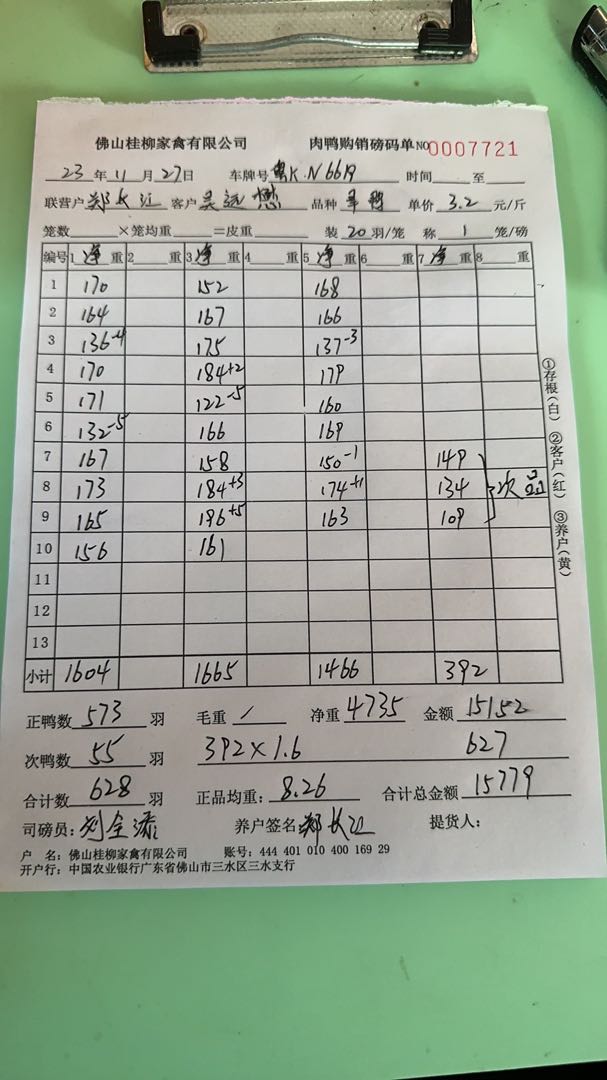 佛山桂柳家禽有限公司 肉鸭购销磅码单 NO 0007721
23 年 11 月 27 日 车牌号 粤K.N6619 时间 至
联营户 郑长江 客户 吴远懋 品种 单价 3.2 元/斤
笼数 ×笼均重 =皮重 装 20 羽/笼 称 1 笼/磅
编号 1 净 重 2 重 3 净 重 4 重 5 净 重 6 重 7 净 重 8 重
1 170 152 168
2 164 167 166
3 136-4 175 137-3
4 170 184+2 179
5 171 122-5 160
6 132-5 166 169
7 167 158 150-1 149
8 173 184+3 174+1 134 次品
9 165 196+5 163 109
10 156 161
11
12
13
小计 1604 1665 1466 392
①存根(白) ②客户(红) ③养户(黄)
正鸭数 573 羽 毛重 / 净重 4735 金额 15152
次鸭数 55 羽 392×1.6 627
合计数 628 羽 正品均重: 8.26 合计总金额 15779
司磅员: 养户签名 郑长江 提货人:
户 名: 佛山桂柳家禽有限公司 账号: 444 401 010 400 169 29
开户行: 中国农业银行广东省佛山市三水区三水支行